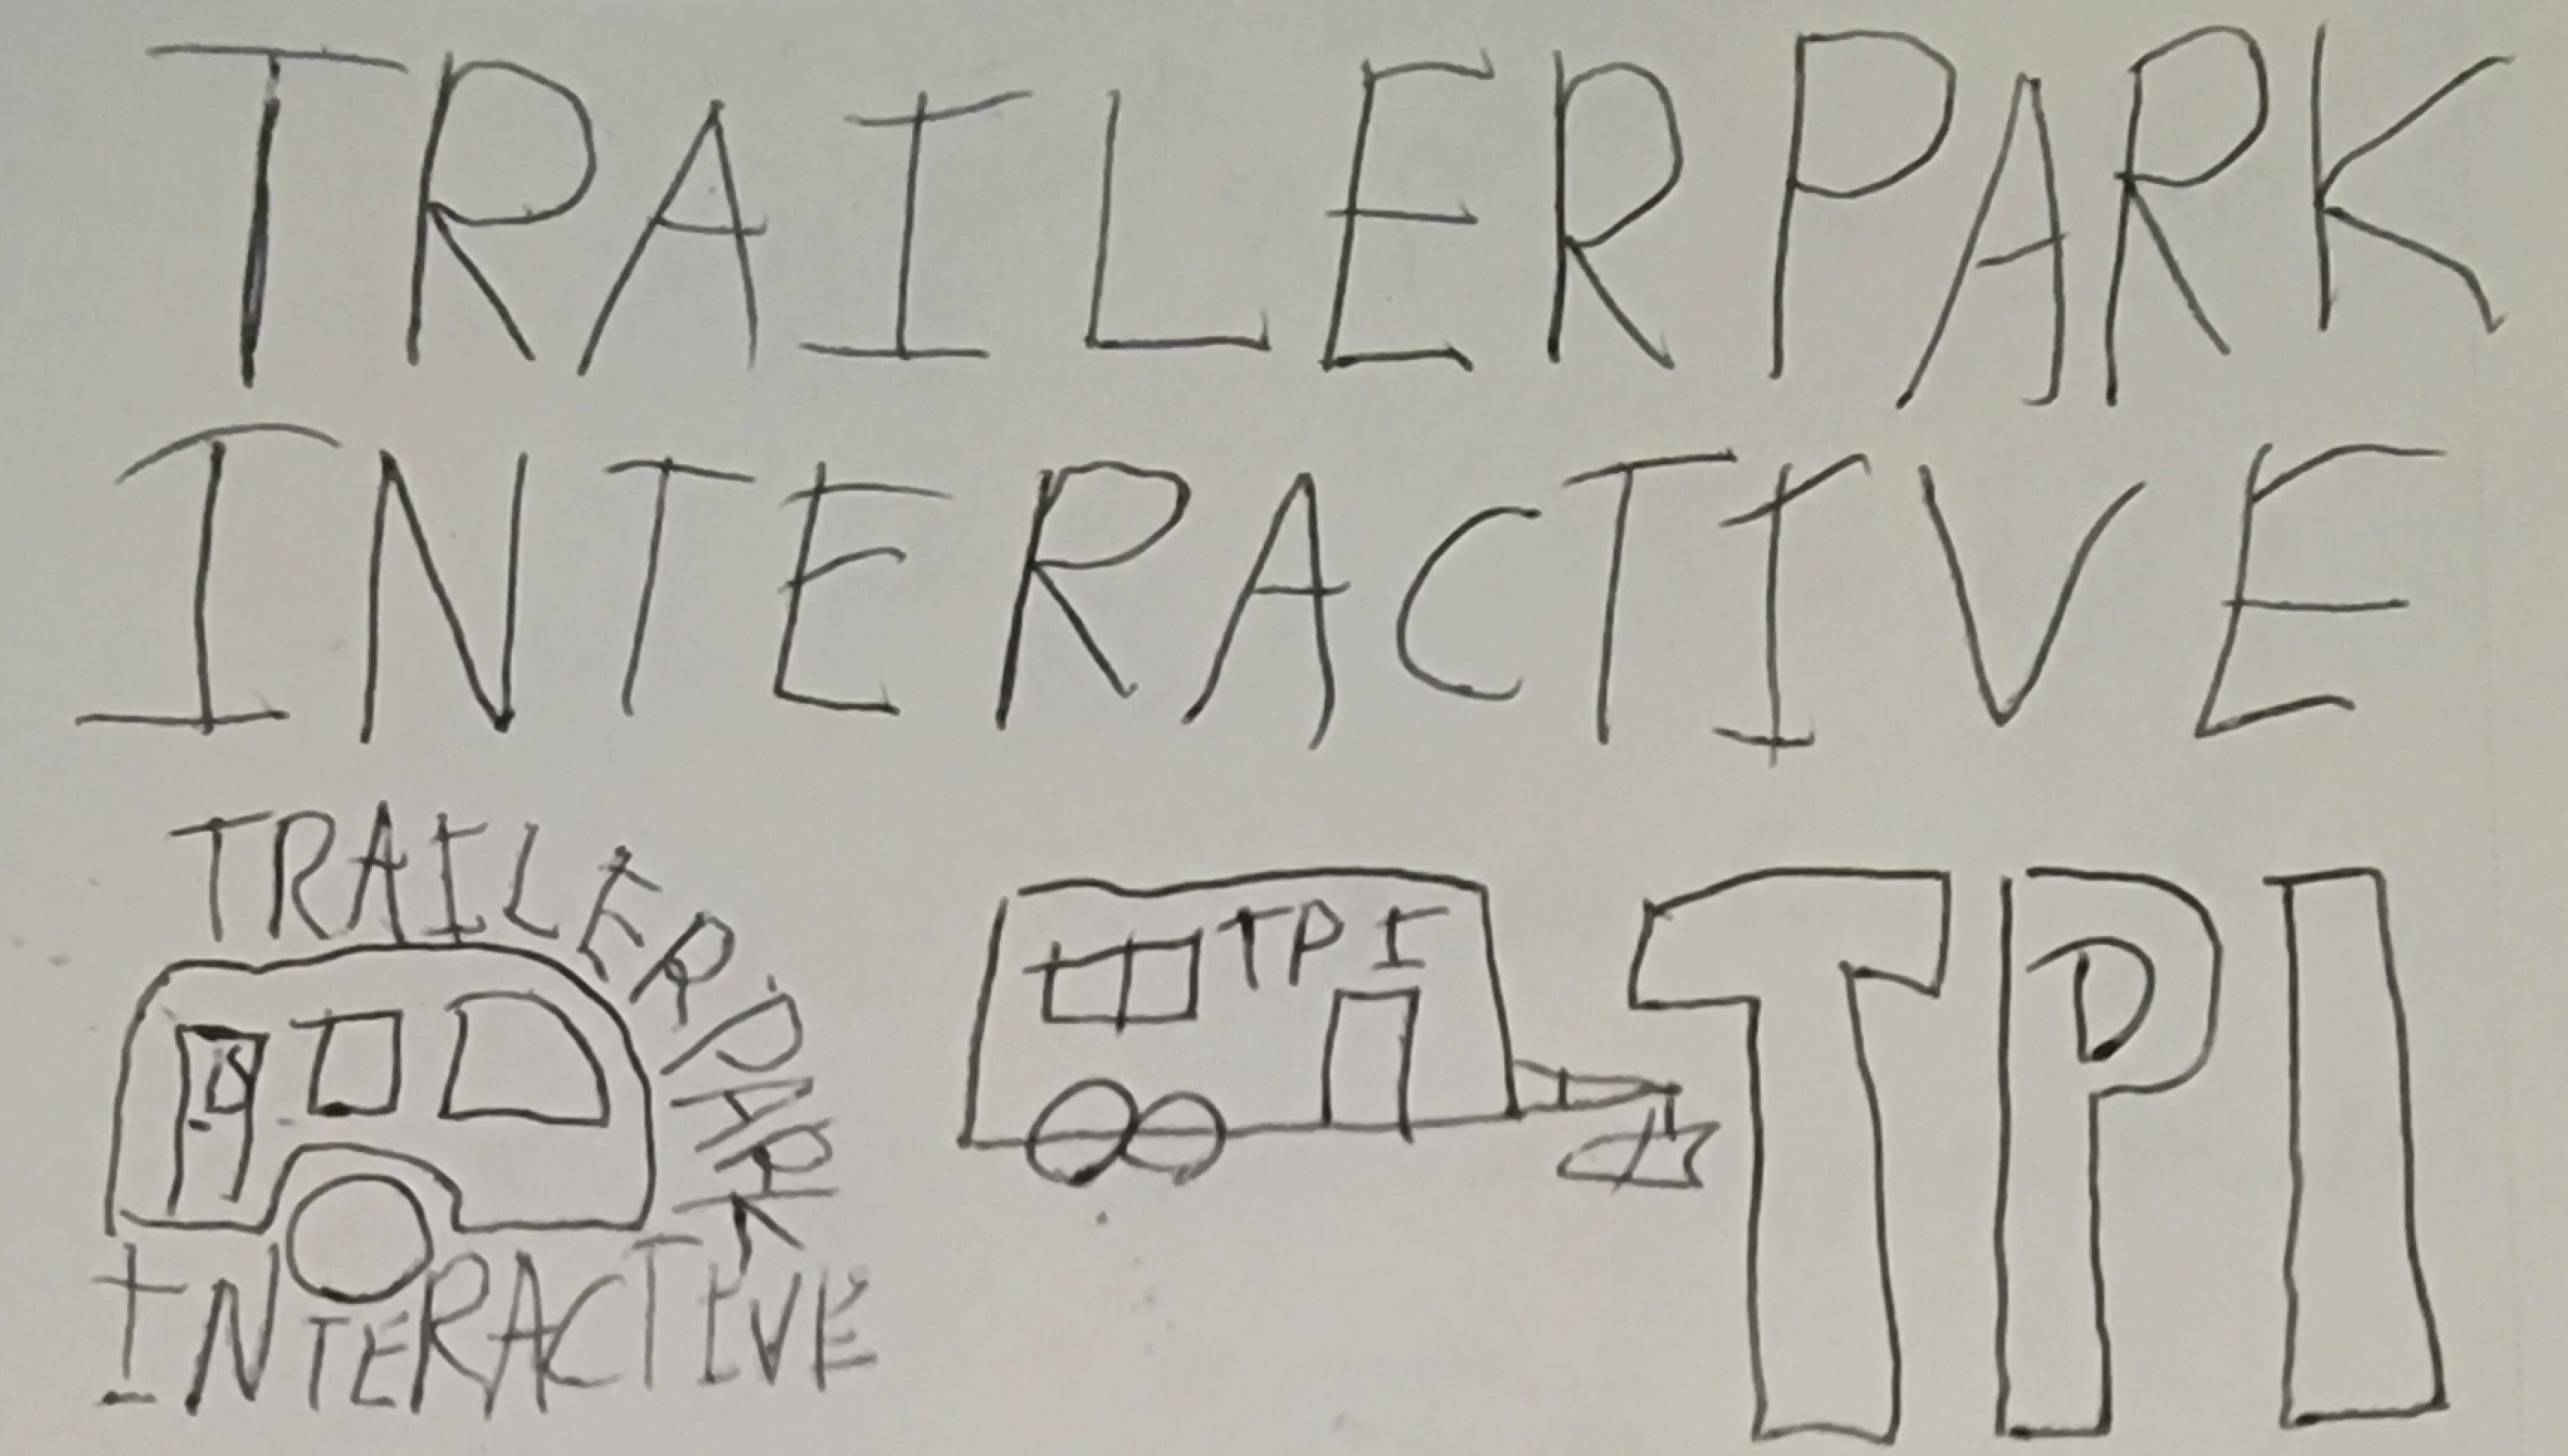 TRAILER PARK
INTERACTIVE
TRAILER PARK
INTERACTIVE
TPI
TPI